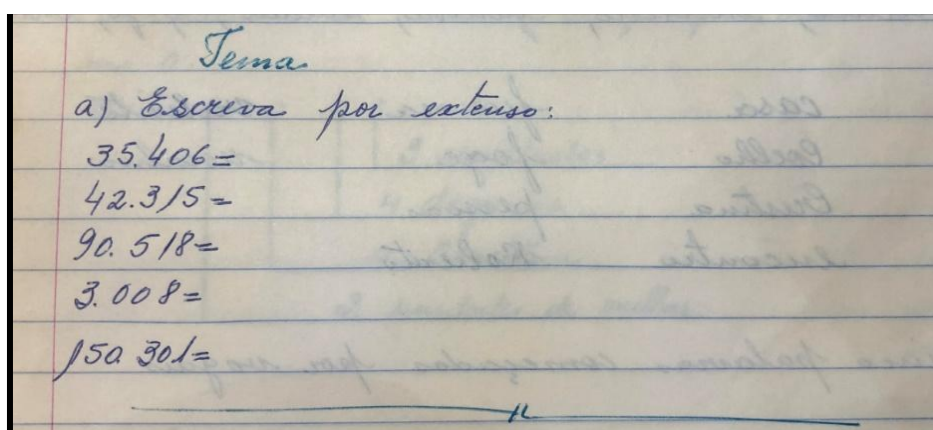 Tema
a) Escreva por extenso:
35.406=
42.315=
90.518=
3.008=
150.301=